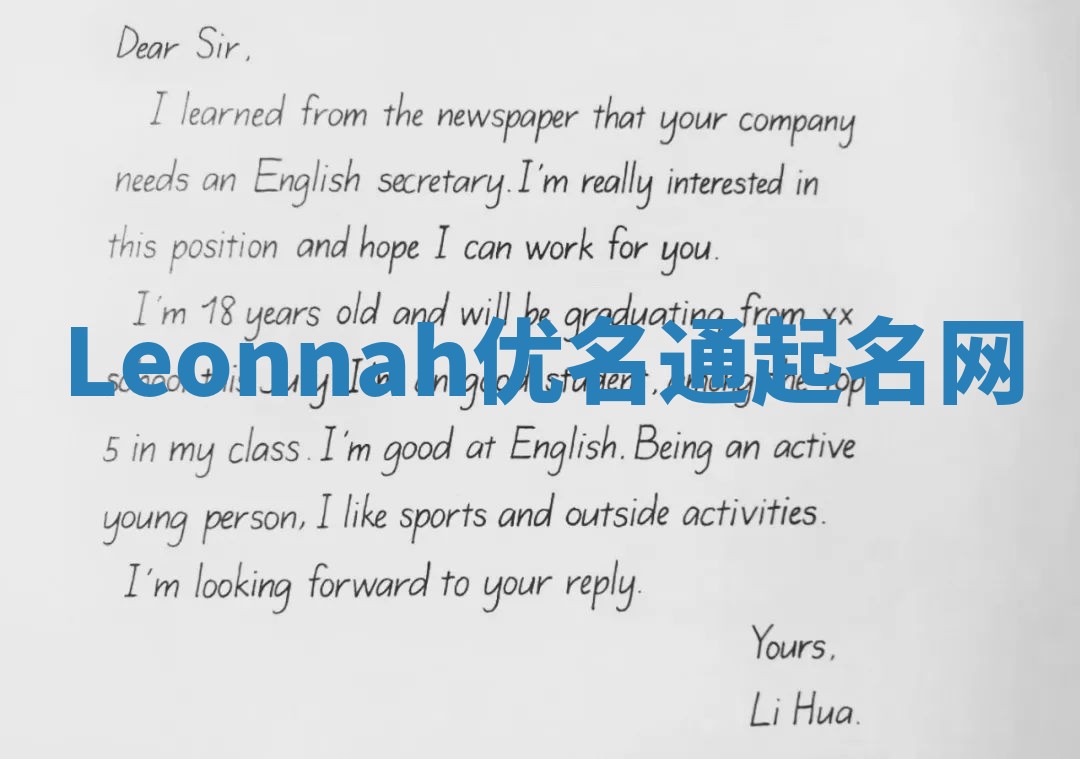 Dear Sir,
I learned from the newspaper that your company
needs an English secretary. I'm really interested in
this position and hope I can work for you.
I'm 18 years old and will be graduating from xx
Leonnah优名通起名网
school this July. I'm an good student, among the top
5 in my class. I'm good at English. Being an active
young person, I like sports and outside activities.
I'm looking forward to your reply.
Yours,
Li Hua.